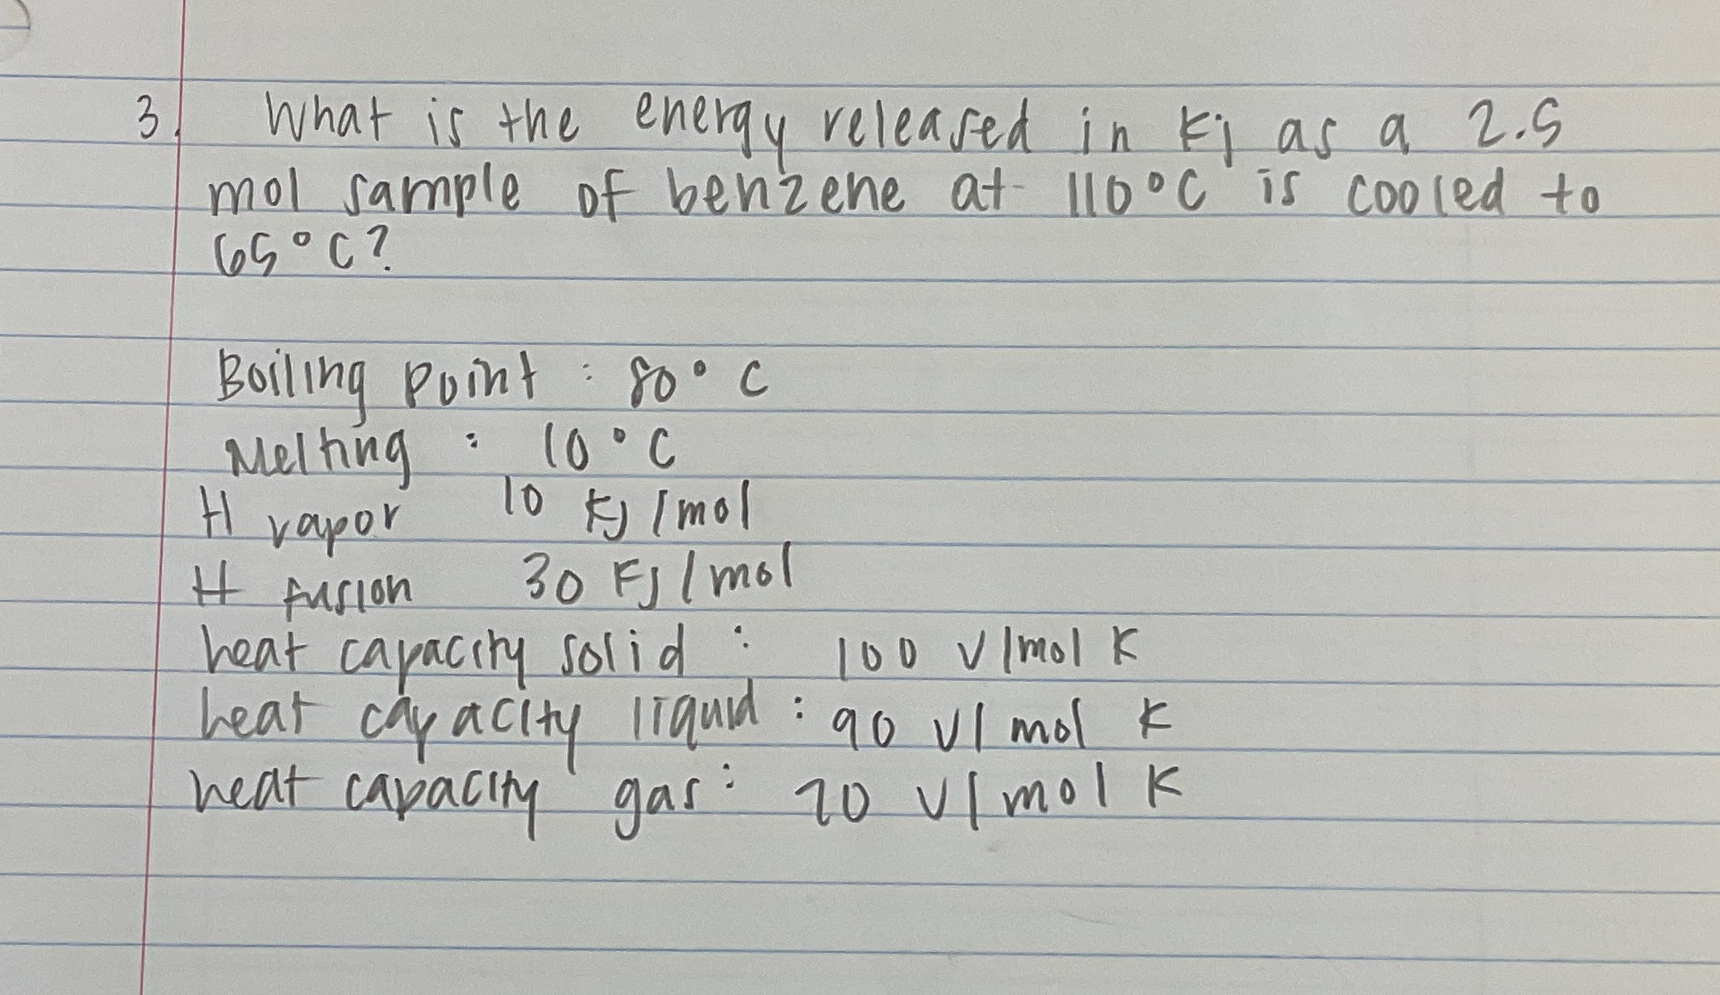 3. What is the energy released in kj as a 2.5
mol sample of benzene at 110°C is cooled to
65°C?
Boiling point : 80° C
Melting : 10°C
H vapor 10 kJ/mol
H fusion 30 kJ/mol
heat capacity solid : 100 J/mol K
heat capacity liquid : 90 J/mol K
heat capacity gas: 70 J/mol K